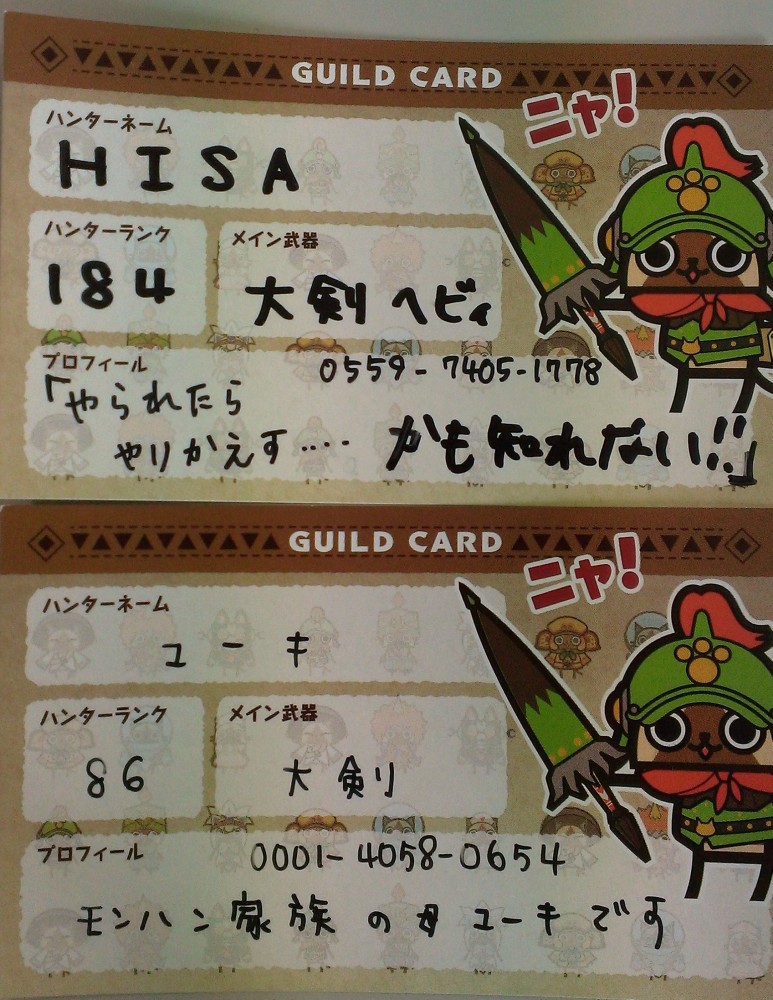 GUILD CARD
ニャ!
ハンターネーム
HISA
ハンターランク
184
メイン武器
大剣 ヘビィ
プロフィール
0559-7405-1778
「やられたら
やりかえす‥‥ かも知れない!!」
GUILD CARD
ニャ!
ハンターネーム
ユーキ
ハンターランク
86
メイン武器
大剣
プロフィール
0001-4058-0654
モンハン家族の母ユーキです